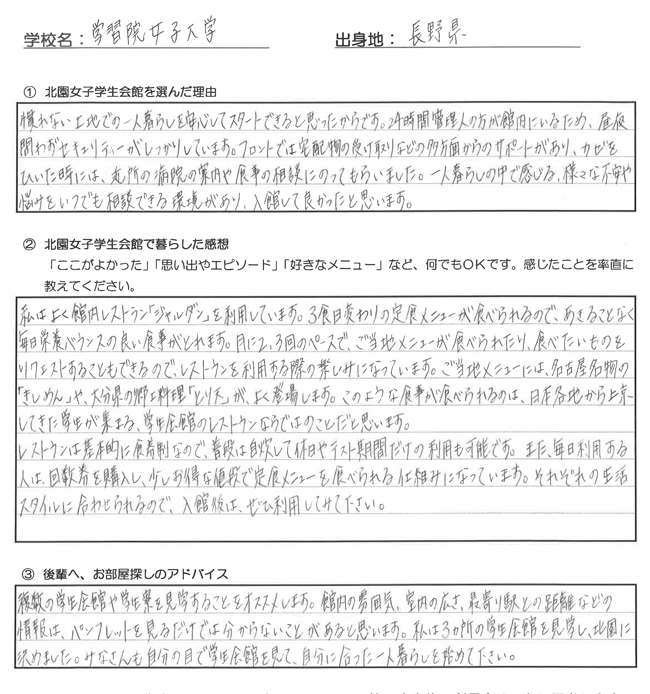 学校名：学習院女子大学　出身地：長野県
① 北園女子学生会館を選んだ理由
慣れない土地での一人暮らしを安心してスタートできると思ったからです。24時間管理人の方が館内にいるため、昼夜
問わずセキュリティーがしっかりしています。フロントでは宅配物の受け取りなどの多方面からのサポートがあり、カゼを
ひいた時には、近所の病院の案内や食事の相談にのってもらいました。一人暮らしの中で感じる、様々な不安や
悩みをいつでも相談できる環境があり、入館して良かったと思います。
② 北園女子学生会館で暮らした感想
「ここがよかった」「思い出やエピソード」「好きなメニュー」など、何でもOKです。感じたことを率直に
教えてください。
私はよく館内レストラン「ジャルダン」を利用しています。3食日変わりの定食メニューが食べられるので、あきることなく
毎日栄養バランスの良い食事がとれます。月に2、3回のペースで、ご当地メニューが食べられたり、食べたいものを
リクエストすることもできるので、レストランを利用する際の楽しみになっています。ご当地メニューには、名古屋名物の
「きしめん」や、大分県の郷土料理「とり天」が、よく登場します。このような食事が食べられるのは、日本各地から上京
してきた学生が集まる、学生会館のレストランならではのことだと思います。
レストランは基本的に食券制なので、普段は自炊して休日やテスト期間だけの利用も可能です。また、毎日利用する
人は、回数券を購入し、少しお得な値段で定食メニューを食べられる仕組みになっています。それぞれの生活
スタイルに合わせられるので、入館後は、ぜひ利用してみて下さい。
③ 後輩へ、お部屋探しのアドバイス
複数の学生会館や学生寮を見学することをオススメします。館内の雰囲気、室内の広さ、最寄り駅との距離などの
情報は、パンフレットを見るだけでは分からないことがあると思います。私は3ヵ所の学生会館を見学し、北園に
決めました。みなさんも自分の目で学生会館を見て、自分に合った一人暮らしを始めて下さい。